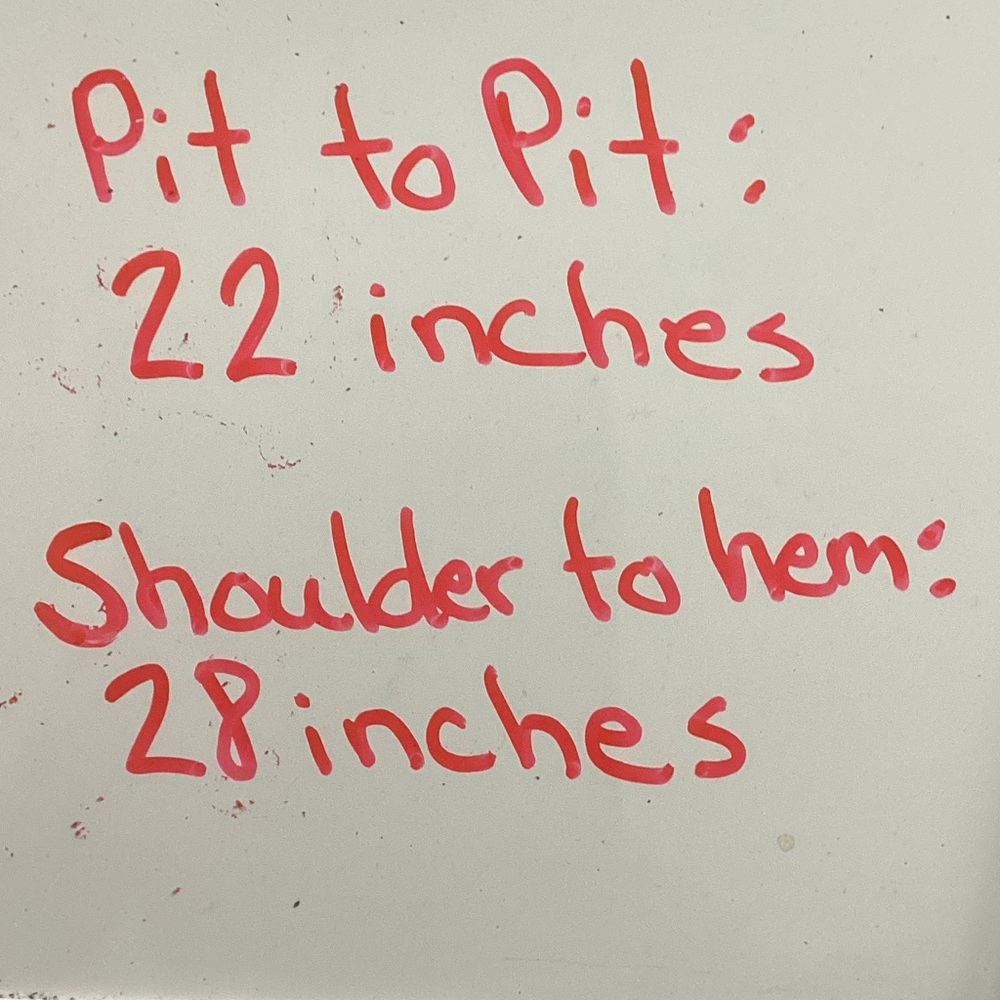 Pit to Pit:
22 inches
Shoulder to hem:
28 inches